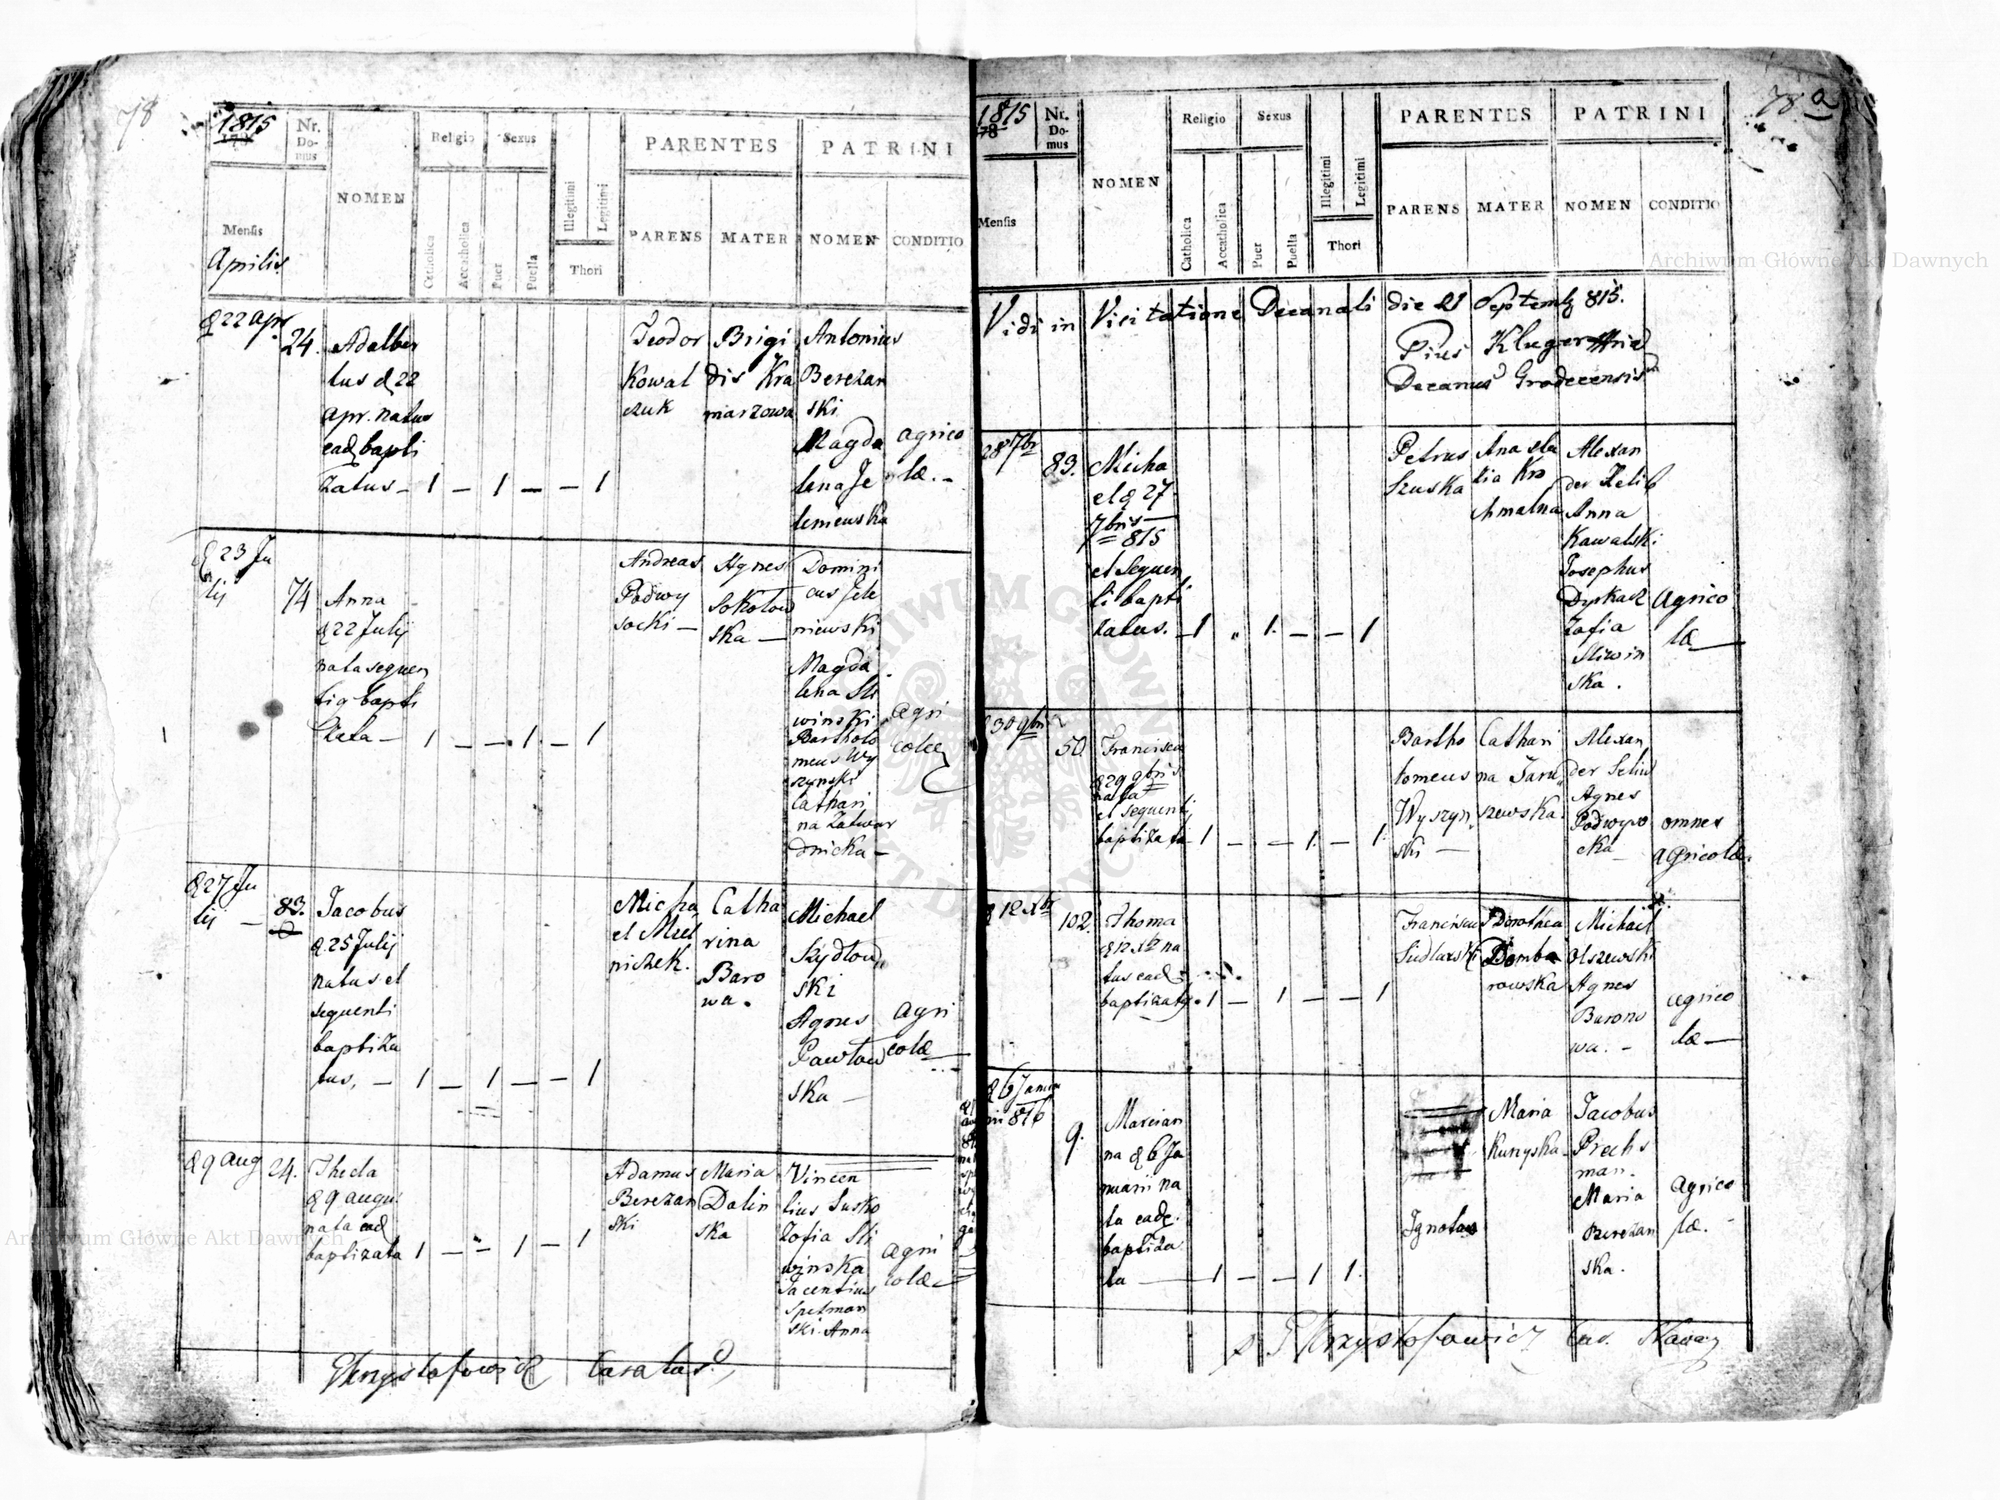 78
1815
Nr. Domus
NOMEN
Religio
Sexus
PARENTES
PATRINI
Mensis
Aprilis
Catholica
Accatholica
Puer
Puella
Illegitimi
Legitimi
Thori
PARENS
MATER
NOMEN
CONDITIO
d 22 apr
24.
Adalber
tus d 22
apr. natus
ead bapti
zatus – 1 – 1 – – 1
Teodor
Kowal
czuk
Brigi
dis Kra
marzowa
Antonius
Berezan
ski
Magda
lena Je
leniewska
agrico
læ. –
d 23 Ju
lij
74
Anna
d 22 Julij
nata sequen
ti bapti
zata – 1 – – 1 – 1
Andreas
Podwy
socki –
Agnes
Sokolow
ska –
Domini
cus Jele
niewski
Magda
lena Sli
winski
Bartholo
meus Wy
szynski
Cathari
na Zatwar
dnicka –
agri
colæ
d 27 Ju
lij –
83.
Jacobus
d. 25 Julij
natus et
sequenti
baptiza
tus, – 1 – 1 – – 1
Micha
el Miel
niczek.
Catha
rina
Baro
wa.
Michael
Kydlow
ski
Agnes
Pawlow
ska –
agri
colæ
d 9 aug
24.
Thecla
d 9 augu
nata ead
baptizata 1 – – 1 – 1
Adamus
Berezan
ski
Maria
Dalin
ska
Vincen
tius Susko
Zofia Sli
winska
Jacentius
Spelman
ski Anna
agri
colæ
Krzysztofowicz Curatus
78 a
1815
Nr. Domus
NOMEN
Religio
Sexus
PARENTES
PATRINI
Mensis
Catholica
Accatholica
Puer
Puella
Illegitimi
Legitimi
Thori
PARENS
MATER
NOMEN
CONDITIO
Vidi in Visitatione Decanali die 21 Septemb 815.
Pius Kluger
Decanus Grodecensis
28 7br
83.
Micha
el d 27
7bris
815
et sequen
ti bapti
zatus. – 1 „ 1. – – 1
Petrus
Szuska
Anasta
zia Kro
chmalna
Alexan
der Zelib
Anna
Kawalski
Josephus
Dyrkacz
Zofia
Sliwin
ska.
agrico
læ
30 9bris
50.
Francisca
d 29 9bris
nata
et sequenti
baptizata 1 – – 1. – 1.
Bartho
lomeus
Wyszyn
ski –
Cathari
na Jaru
szewska.
Alexan
der Seliw
Agnes
Podwyso
cka
omnes
agricolæ.
d 12 xbr
102.
Thoma
d 12 xbr na
tus ead
baptizatus. 1 – 1 – – 1
Franciscus
Sudlarski
Dorothea
Domba
rowska
Michael
Olszewski
Agnes
Barono
wa. –
agrico
læ
d 6 Janua
rii 816
9.
Marian
na d 6 Ja
nuarii na
ta ead.
baptiza
ta – 1 – – 1 1.
Ignotus
Maria
Kunyska
Jacobus
Prechs
man.
Maria
Berezan
ska.
agrico
læ. –
Krzysztofowicz Cur.
Archiwum Główne Akt Dawnych
Archiwum Główne Akt Dawnych
ARCHIWUM GŁÓWNE AKT DAWNYCH